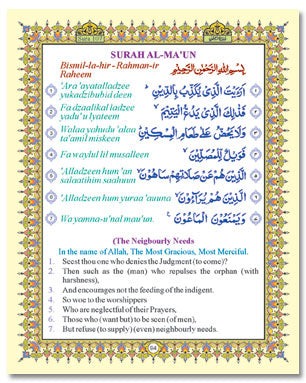 SURAH AL-MA'UN
Bismil-la-hir - Rahman-ir
Raheem
بِسْمِ اللهِ الرَّحْمٰنِ الرَّحِيْمِ
'Ara'ayatalladzee
yukadzibubid deen
اَرَءَيْتَ الَّذِيْ يُكَذِّبُ بِالدِّيْنِ
Fa dzaalikal ladzee
yadu' u lyateem
فَذٰلِكَ الَّذِيْ يَدُعُّ الْيَتِيْمَ
Walaa yahudu 'alaa
ta'amil miskeen
وَلَا يَحُضُّ عَلٰى طَعَامِ الْمِسْكِيْنِ
Fa waylul lil musalleen
فَوَيْلٌ لِّلْمُصَلِّيْنَ
'Alladzeen hum 'an
salaatihim saahuun
الَّذِيْنَ هُمْ عَنْ صَلَاتِهِمْ سَاهُوْنَ
'Alladzeen hum yuraa'auuna
الَّذِيْنَ هُمْ يُرَآءُوْنَ
Wa yamna-u'nal mau'un.
وَيَمْنَعُوْنَ الْمَاعُوْنَ
(The Neigbourly Needs
In the name of Allah, The Most Gracious, Most Merciful.
1. Seest thou one who denies the Judgment (to come)?
2. Then such as the (man) who repulses the orphan (with
harshness),
3. And encourages not the feeding of the indigent.
4. So woe to the worshippers
5. Who are neglectful of their Prayers,
6. Those who (want but) to be seen (of men),
7. But refuse (to supply) (even) neighbourly needs.